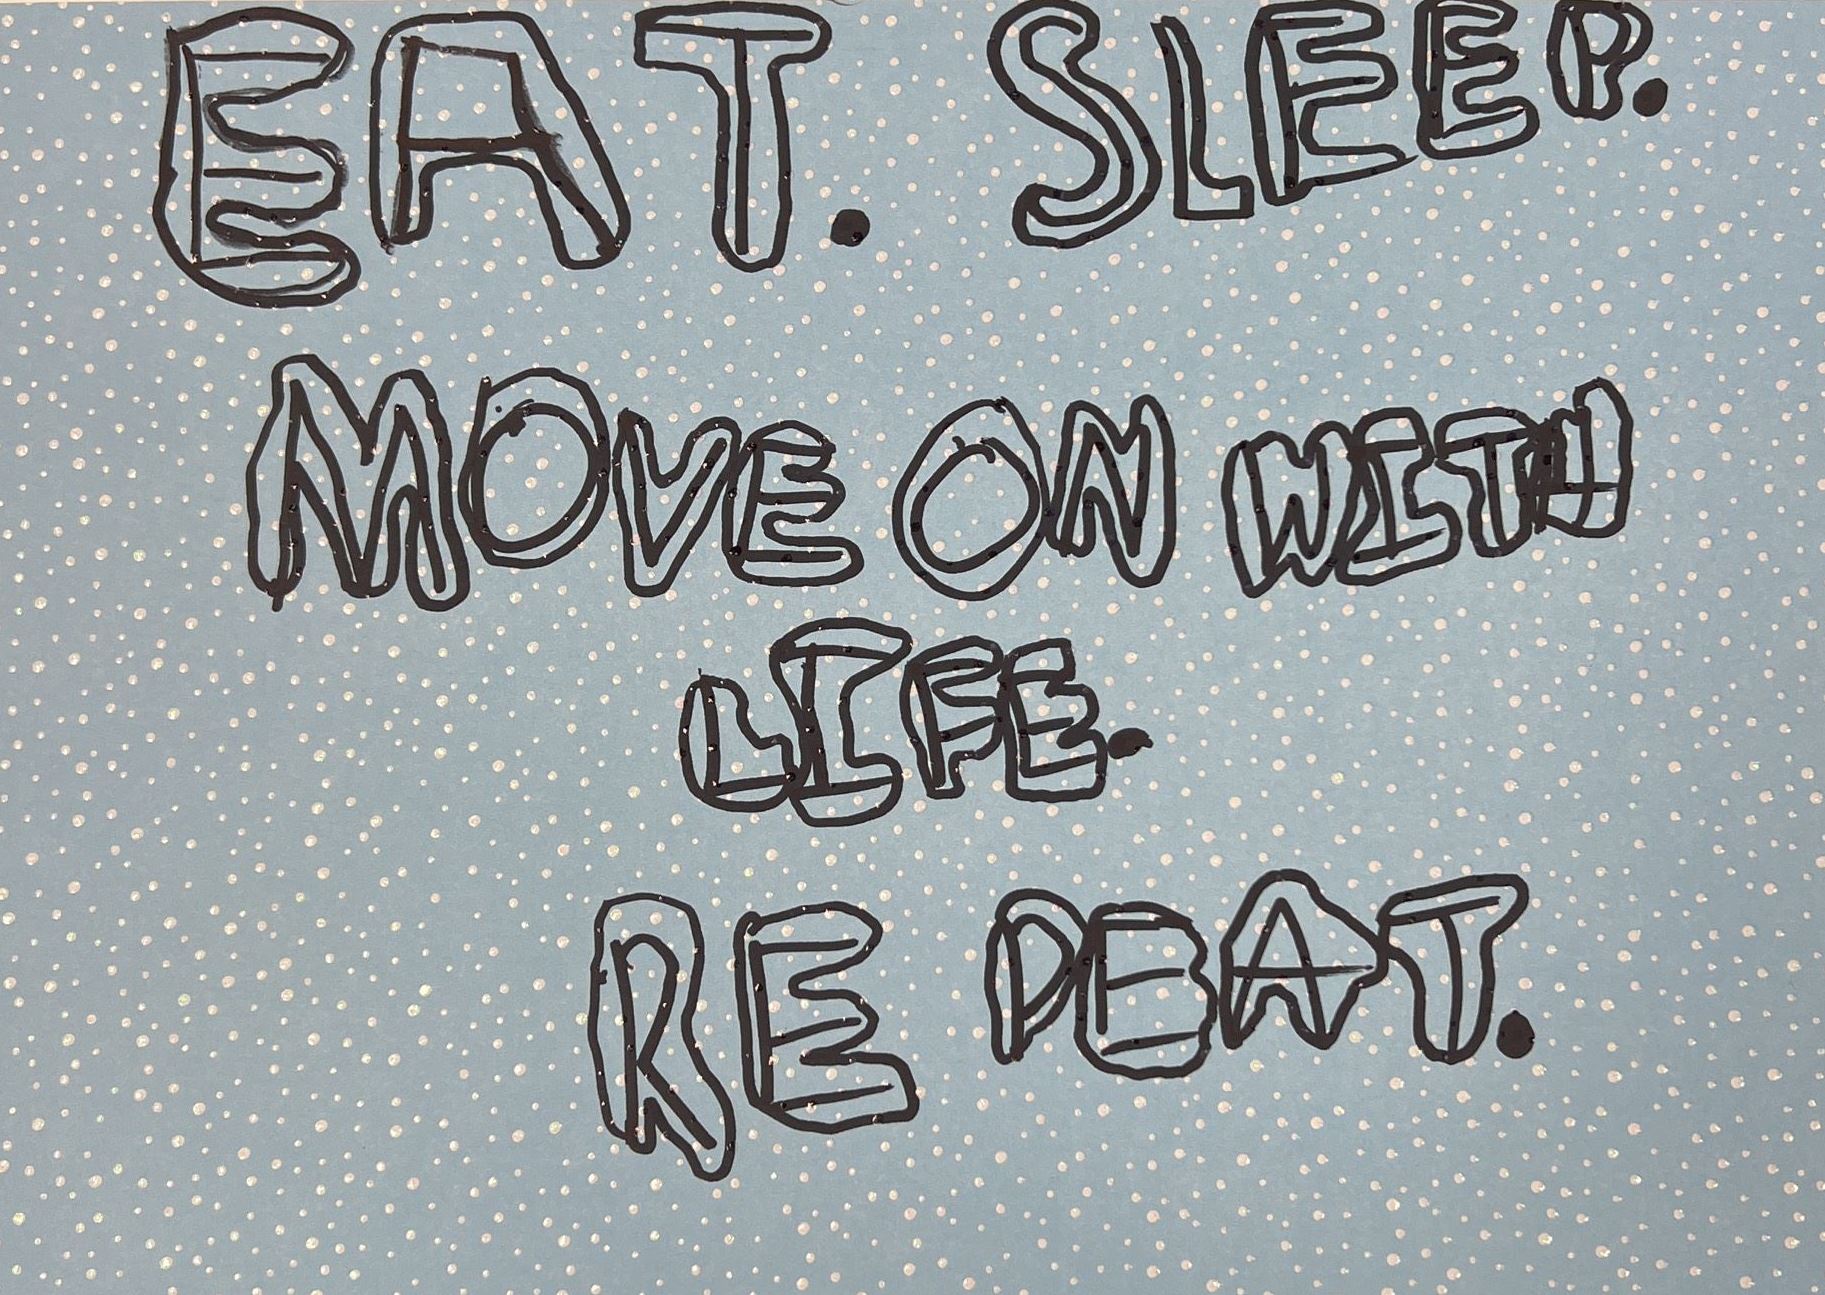 EAT. SLEEP.
MOVE ON WITH
LIFE.
RE PEAT.